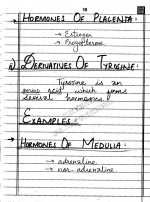 18
→ HORMONES OF PLACENTA:
→ Estrogen
→ Progesterone
ii) DERIVATIVES OF TYROSINE:
Tyrosine is an
amino acid which forms
several hormones.
EXAMPLES
→ HORMONES OF MEDULLA:
→ adrenaline
→ nor-adrenaline